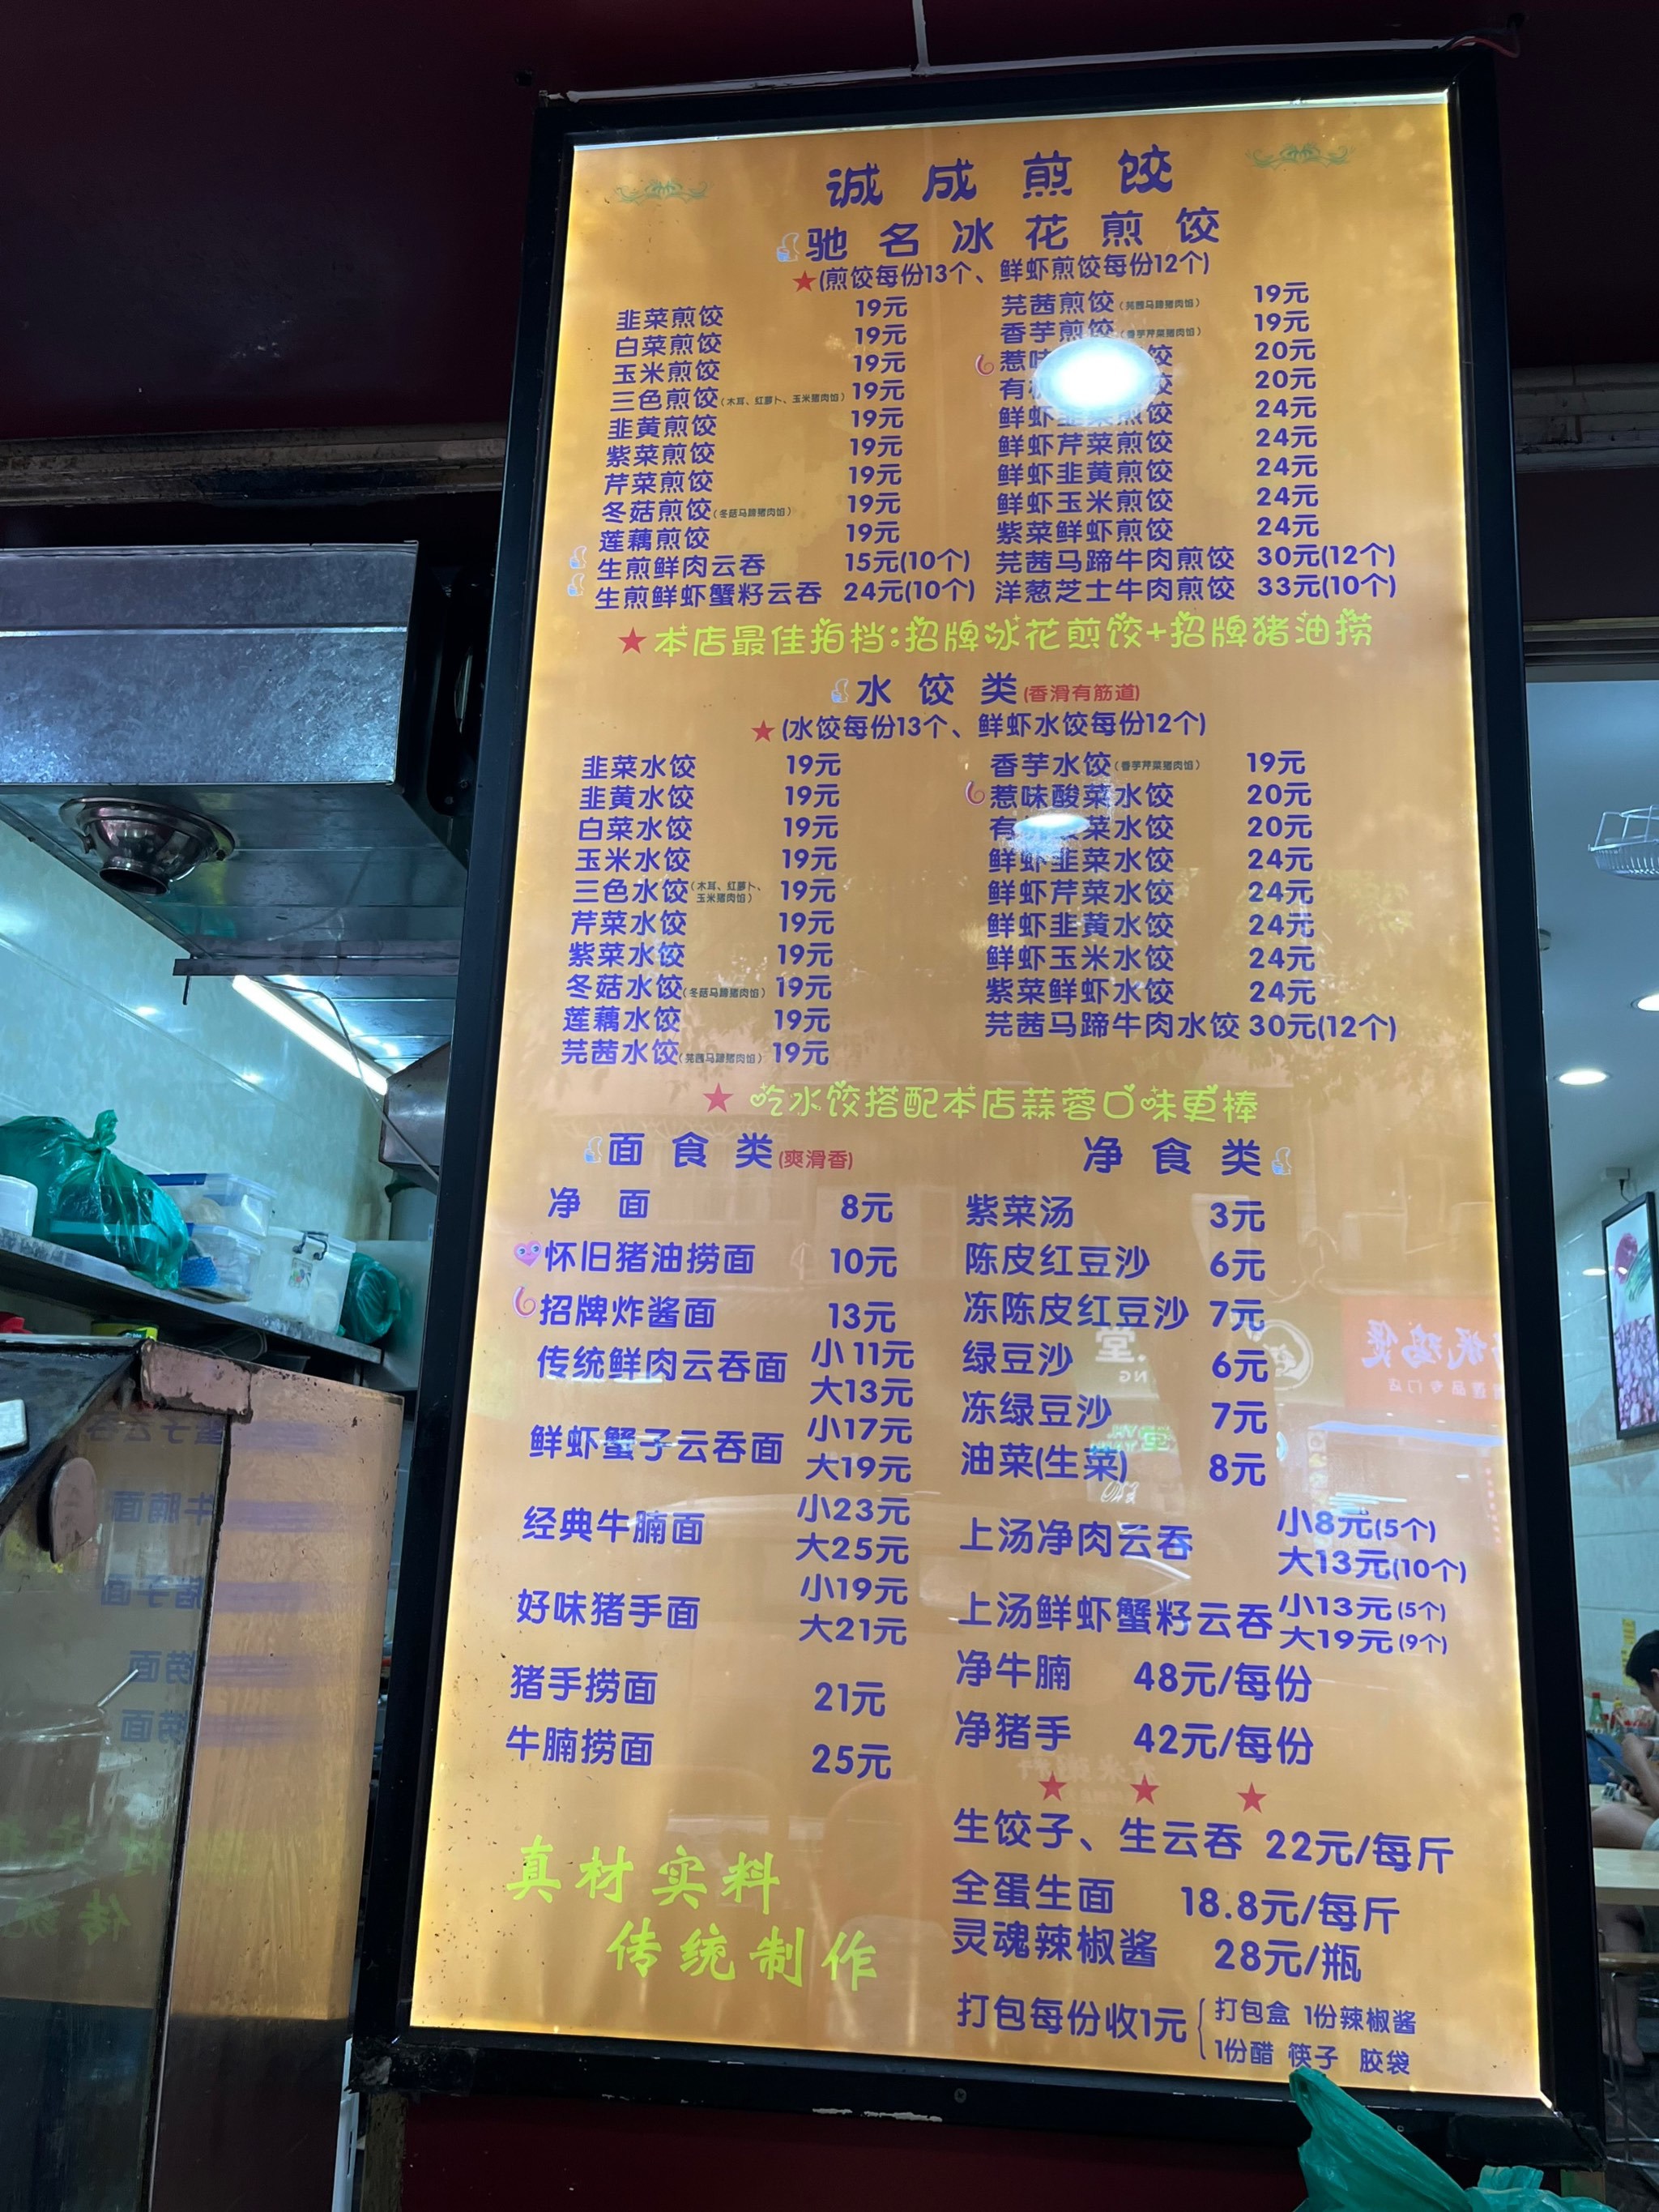 诚成煎饺
驰名冰花煎饺
★(煎饺每份13个、鲜虾煎饺每份12个)
韭菜煎饺 19元
白菜煎饺 19元
玉米煎饺 19元
三色煎饺(木耳、红萝卜、玉米猪肉馅) 19元
韭黄煎饺 19元
紫菜煎饺 19元
芹菜煎饺 19元
冬菇煎饺(冬菇马蹄猪肉馅) 19元
莲藕煎饺 19元
生煎鲜肉云吞 15元(10个)
生煎鲜虾蟹籽云吞 24元(10个)
芫茜煎饺(芫茜马蹄猪肉馅) 19元
香芋煎饺(香芋芹菜猪肉馅) 19元
惹味 饺 20元
有 饺 20元
鲜虾韭菜煎饺 24元
鲜虾芹菜煎饺 24元
鲜虾韭黄煎饺 24元
鲜虾玉米煎饺 24元
紫菜鲜虾煎饺 24元
芫茜马蹄牛肉煎饺 30元(12个)
洋葱芝士牛肉煎饺 33元(10个)
★本店最佳拍档:招牌冰花煎饺+招牌猪油捞
水饺类(香滑有筋道)
★(水饺每份13个、鲜虾水饺每份12个)
韭菜水饺 19元
韭黄水饺 19元
白菜水饺 19元
玉米水饺 19元
三色水饺(木耳、红萝卜、玉米猪肉馅) 19元
芹菜水饺 19元
紫菜水饺 19元
冬菇水饺(冬菇马蹄猪肉馅) 19元
莲藕水饺 19元
芫茜水饺(芫茜马蹄猪肉馅) 19元
香芋水饺(香芋芹菜猪肉馅) 19元
惹味酸菜水饺 20元
有 菜水饺 20元
鲜虾韭菜水饺 24元
鲜虾芹菜水饺 24元
鲜虾韭黄水饺 24元
鲜虾玉米水饺 24元
紫菜鲜虾水饺 24元
芫茜马蹄牛肉水饺 30元(12个)
★吃水饺搭配本店蒜蓉口味更棒
面食类(爽滑香)
净面 8元
怀旧猪油捞面 10元
招牌炸酱面 13元
传统鲜肉云吞面 小11元
大13元
鲜虾蟹子云吞面 小17元
大19元
经典牛腩面 小23元
大25元
好味猪手面 小19元
大21元
猪手捞面 21元
牛腩捞面 25元
真材实料
传统制作
净食类
紫菜汤 3元
陈皮红豆沙 6元
冻陈皮红豆沙 7元
绿豆沙 6元
冻绿豆沙 7元
油菜(生菜) 8元
上汤净肉云吞 小8元(5个)
大13元(10个)
上汤鲜虾蟹籽云吞 小13元(5个)
大19元(9个)
净牛腩 48元/每份
净猪手 42元/每份
★ ★ ★
生饺子、生云吞 22元/每斤
全蛋生面 18.8元/每斤
灵魂辣椒酱 28元/瓶
打包每份收1元{打包盒 1份辣椒酱
1份醋 筷子 胶袋